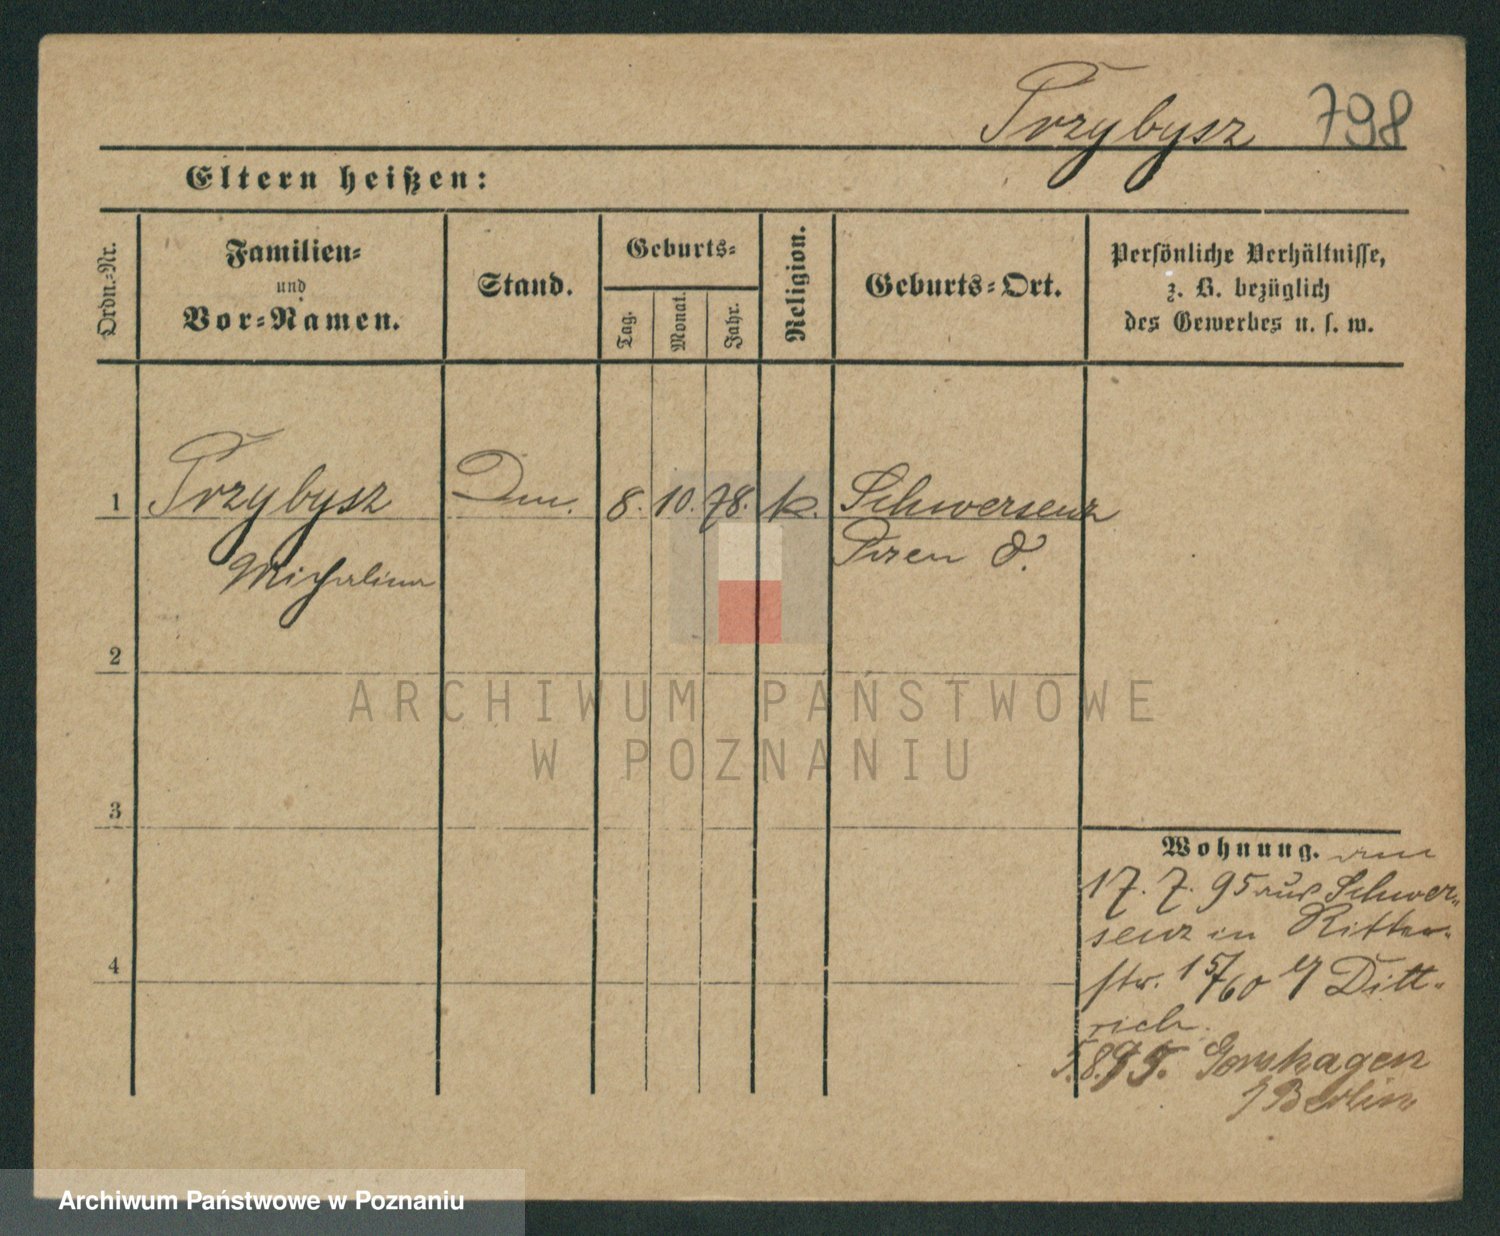 Przybysz 798
Eltern heißen:
Ordn.-Nr.
Familien-
und
Vor-Namen.
Stand.
Geburts-
Tag.
Monat.
Jahr.
Religion.
Geburts-Ort.
Persönliche Verhältnisse,
z. B. bezüglich
des Gewerbes u. s. w.
1 Przybysz 8. 10. 78. k. Schwersenz
Michalina Posen O.
2
ARCHIWUM PAŃSTWOWE
W POZNANIU
3
Wohnung.
17. 7. 95 aus Schwer-
senz in Ritter-
str. 15/60 Ditt-
rich.
5.8.95.
Berlin
4
Archiwum Państwowe w Poznaniu